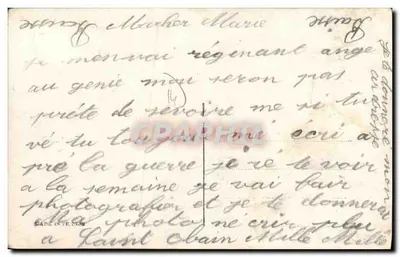 Ma cher Marie
je men vai réginant ange
au genie mou seron pas
préte de sevoire me si tu
vé tu toujour mé écri a
pré la guerre je iré te voir
a la semaine je vai fair
photografier et je te donnerai
Ma photo né cri plu
a Saint Obain Mille Mille
je te donnere mon
adrese
Baisse
Baisse